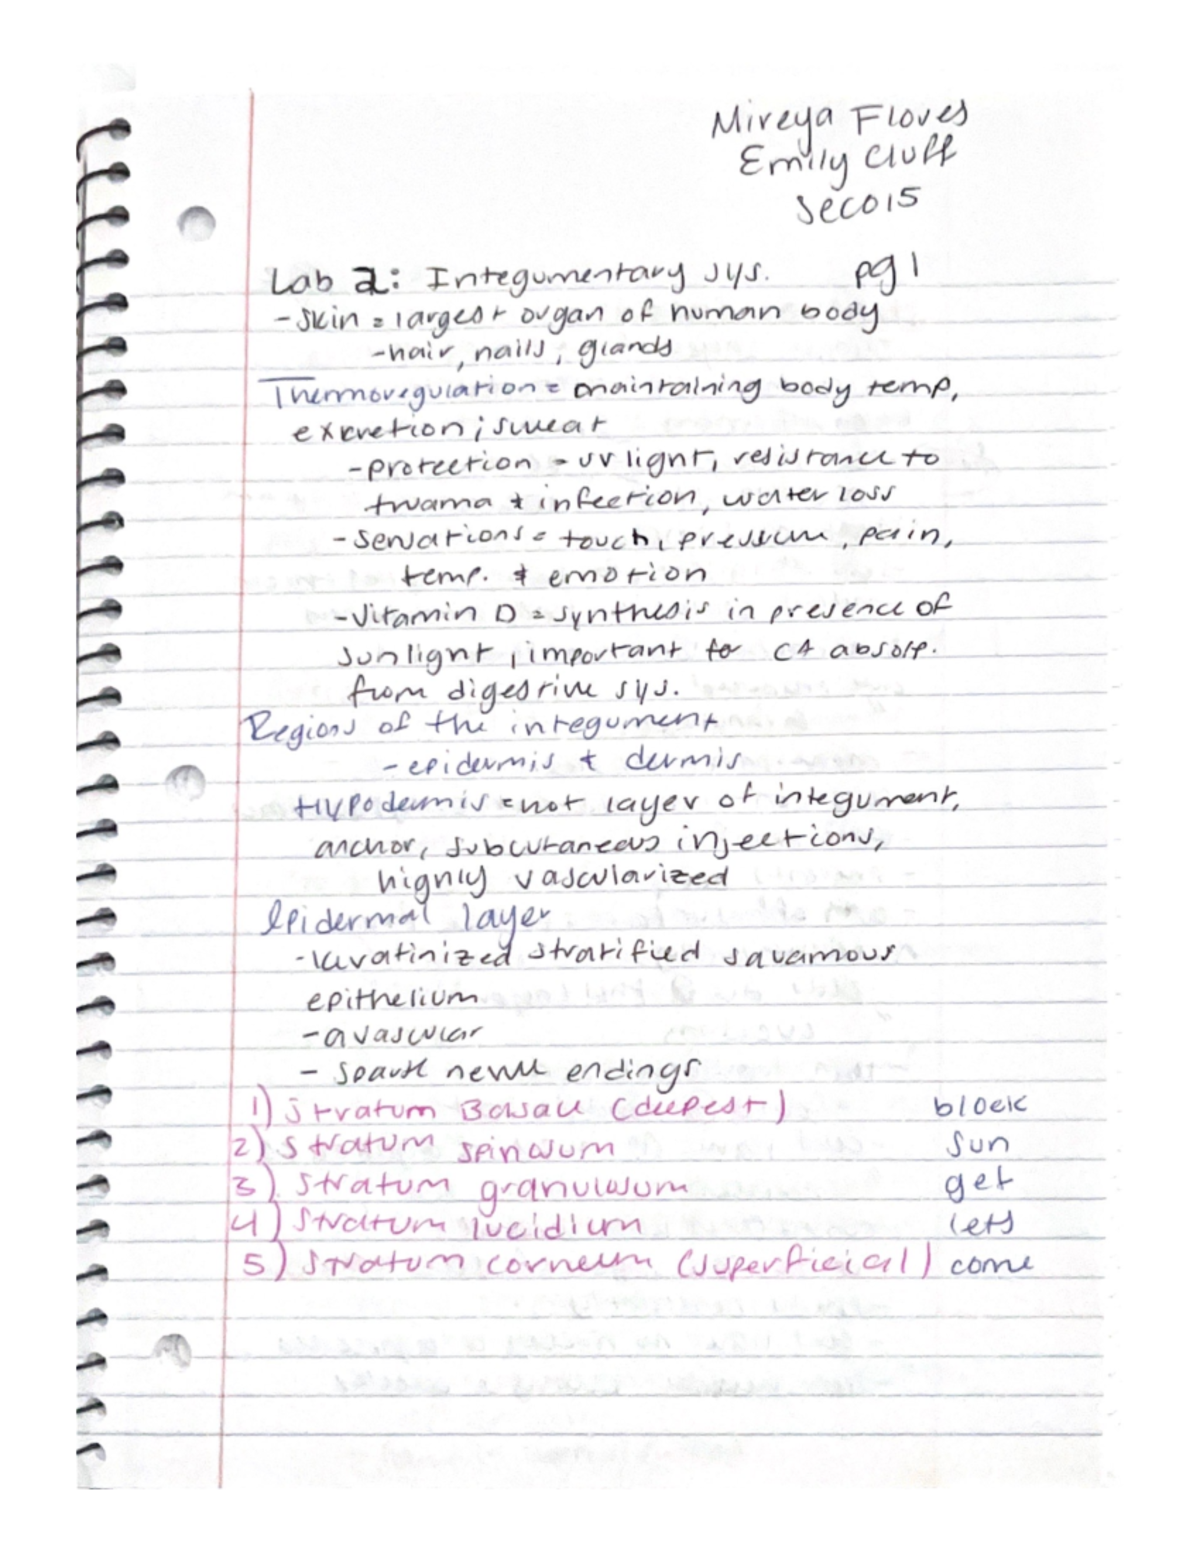 Mireya Flores
Emily Cluff
Sec015
Lab 2: Integumentary sys. pg 1
- Skin = largest organ of human body
- hair, nails, glands
Thermoregulation = maintaining body temp,
excretion; sweat
- protection - UV light, resistance to
trauma & infection, water loss
- Sensations = touch, pressure, pain,
temp. & emotion
- Vitamin D = synthesis in presence of
sunlight, important for CA absorp.
from digestive sys.
Regions of the integument
- epidermis + dermis
Hypodermis = not layer of integument,
anchor, subcutaneous injections,
highly vascularized
Epidermal layer
- keratinized stratified squamous
epithelium
- avascular
- sparse nerve endings
1) Stratum Basale (deepest) block
2) Stratum spinosum sun
3) Stratum granulosum get
4) Stratum lucidium lets
5) Stratum corneum (superficial) come